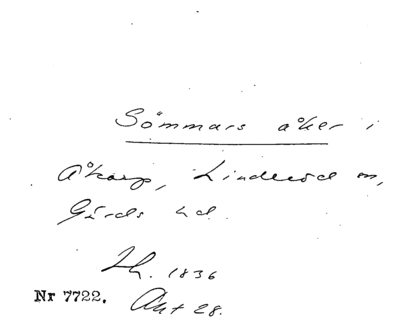 Sömmars åker i
Åkarp, Linderöd sn,
Gärds hd.
Lh. 1836
Akt 28.
Nr 7722.